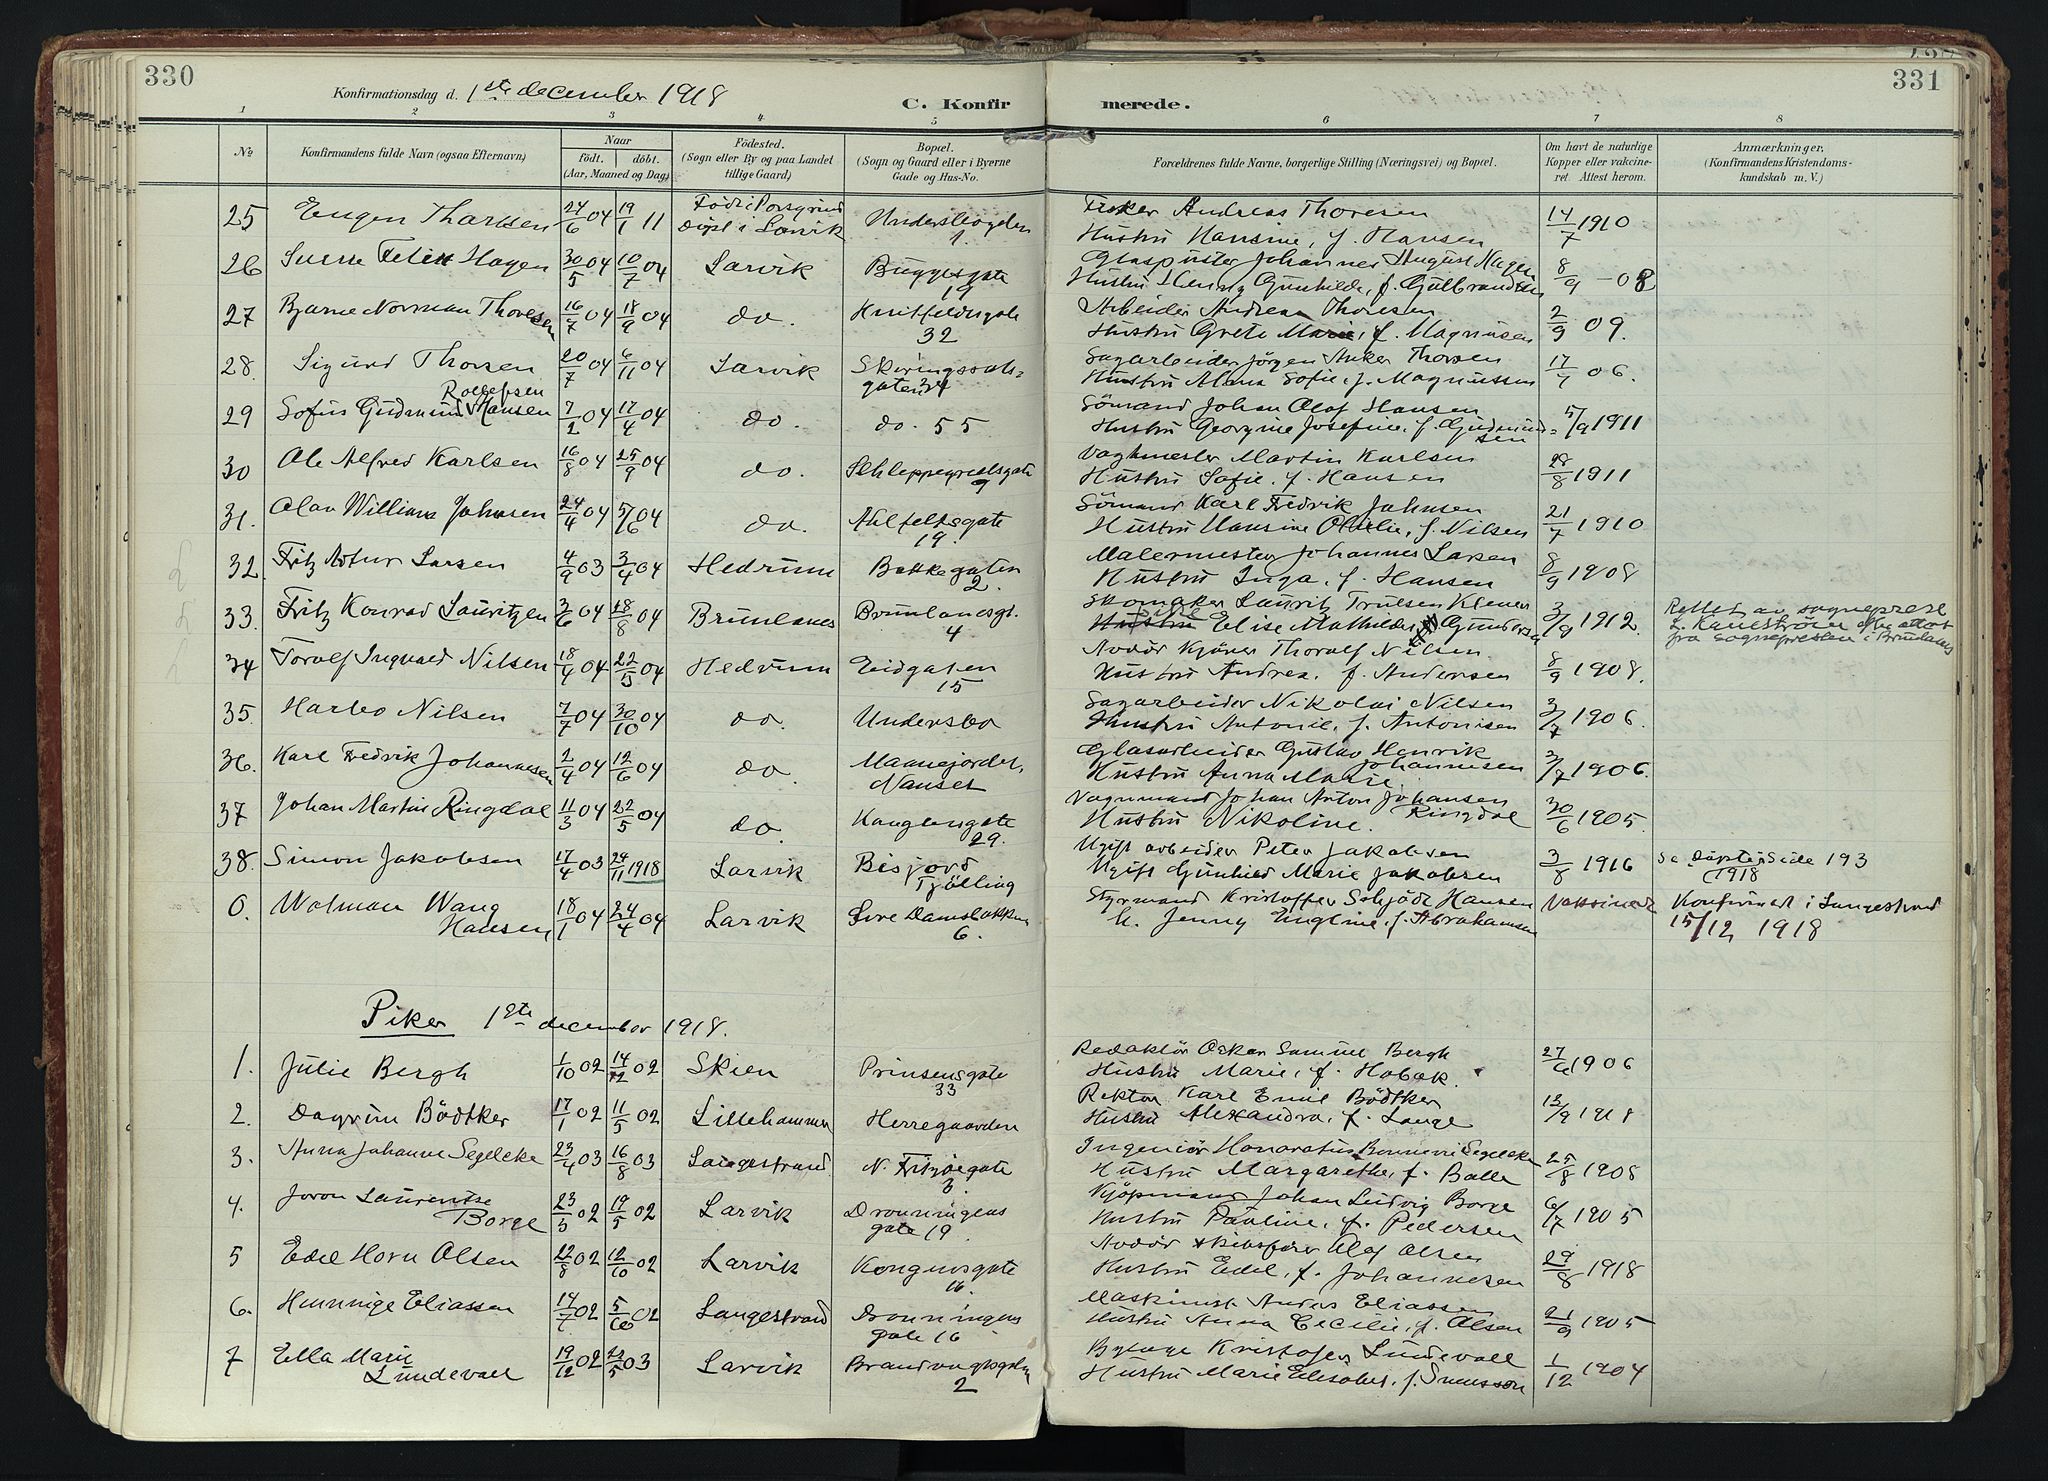 330
331
Konfirmationsdag d. 1ste december 1918
C. Konfirmerede.
1 2 3 4 5 6 7 8
№
Konfirmandens fulde Navn (ogsaa Efternavn)
Naar
født. døbt.
(Aar, Maaned og Dag)
Fødested.
(Sogn eller By og paa Landet
tillige Gaard)
Bopæl.
(Sogn og Gaard eller i Byerne
Gade og Hus-No.
Forældrenes fulde Navne, borgerlige Stilling (Næringsvei) og Bopæl.
Om havt de naturlige
Kopper eller vakcine-
ret. Attest herom.
Anmærkninger.
(Konfirmandens Kristendoms-
kundskab m. V.)
25 Eugen 24/6 04 19/1 11 Født i Porsgrund Andreas Thoresen 14/7 1910
døpt i Larvik 1. Hustru Hansine, f. Hansen
26 Hagen 30/5 04 10/7 04 Larvik Buggesgate Glaspuster Johannes August Hagen 8/9 - 08
19 Hustru Henny Gunhilde, f. Gulbrandsen
27 Bjarne Norman Thoresen 16/7 04 18/9 04 do. Huitfeldtsgate Arbeider Andreas Thoresen 2/9 09.
32 Hustru Grete Marie, f. Magnusen
28. Sigurd Thorsen 20/7 04 6/11 04 Larvik Skiringssals= Sagarbeider Jørgen Anker Thorsen 17/7 06.
gaten 34 Hustru Maria Sofie, f. Magnussen
Rollefsen
29 Sofus Gudmund Hansen 7/2 04 17/4 04 do. do. 55 Sömand Johan Olaf Hansen 5/9 1911
Hustru Georgine Josefine, f. Gudmund=
sen
30 Ole Alfred Karlsen 16/8 04 25/9 04 do. Schleppegrellsgate Martin Karlsen 28/8 1911
9 Hustru Sofie, f. Hansen
31. William Johnsen 24/4 04 5/6 04 do. Ahlefeltsgate Sömand Karl Fredrik Johnsen 21/7 1910
19. Hustru Hansine f. Nilsen
32 Fritz Artur Larsen 4/9 03 3/4 04 Hedrum Bakkegaten Malermester Johannes Larsen 8/9 1908
2. Hustru Inga, f. Hansen
33. Fritz Konrad Lauritzen 3/6 04 28/8 04 Brunlanes Brunlanesgt. Skomaker Laurits Trulsen 3/9 1912. Rettet av sogneprest
4 Elise Mathilde Gunders L. efter attest
fra sognepresten i Brunlanes
34 Toralf Ingvald Nilsen 18/4 04 22/5 04 Hedrum Eidgaten Avdöd Thoralf Nilsen 8/9 1908.
15 Hustru Andrea, f. Andersen
35. Nilsen 7/7 04 30/10 04 do. Undersbo Sagarbeider Nikolai Nilsen 3/7 1906.
Hustru Antonie, f. Antonisen
36. Karl Fredrik Johannesen 2/4 04 12/6 04 do. Maanejordet, Glasarbeider Gustav Henrik 3/7 1906.
Nanset Hustru Anna Marie Johannesen
37 Johan Martin Ringdal 11/3 04 22/5 04 do Kongensgate Johan Anton Johansen 30/6 1905.
29. Hustru Nikoline. Ringdal
38. Simon Jakobsen 17/4 03 24/11 1918 Larvik Bisjord Ugift arbeider Peter Jakobsen 3/8 1916 se döpte Side 193
Tjölling Ugift Gunhild Marie Jakobsen 1918
0. Wang 18/1 04 24/4 04 Larvik Damsbakken Styrmand Kristoffer Schjödt Hansen Vaksinert Konfirmert i Langestrand
Hansen 6. h. Jenny f. Abrahamsen 15/12 1918
Piker 1ste december 1918.
1. Julie Bergh 1/10 02 14/12 02 Skien Prinsensgate Redaktör Oskar Samuel Bergh 27/6 1906
33 Hustru Marie, f. Hobæk.
2. Dagrun Bödtker 17/1 02 11/5 02 Lillehammer Herregaarden Rektor Karl Emil Bödtker 13/9 1918
Hustru Alexandra, f. Lange
3. Anna Johanne Segelcke 23/4 03 16/8 03 Langestrand N. Fritzöegate Ingeniör Honoratus Bonnevie Segelcke 25/8 1908
3. Hustru Margarethe, f. Balle
4. Laurentse 23/3 02 19/5 02 Larvik Dronningens Kjöpmand Johan Ludvig Borge 6/7 1905
Borge gate 19 Hustru Pauline, f. Pedersen
5 Edel Horn Olsen 22/8 02 12/10 02 Larvik Kongensgate Avdöd skibsförer Olaf Olsen 29/8 1918
16. Hustru Edel, f. Johannesen
6. Henninge Eliassen 14/7 02 5/10 02 Langestrand Dronningens Maskinist Anders Eliassen 21/9 1905
gate 16 Hustru Anna Cecilie, f. Olsen
7 Ella Marie 19/12 02 22/5 03 Larvik Brandvagtsgaten Kristofer Lundevall 1/12 1904
Lundevall 2 Hustru Marie Elisabet, f. Svensson